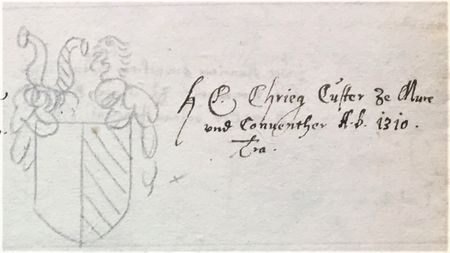 H C. Chrieg Custer ze Mure
und Conventher A.b. 1310.